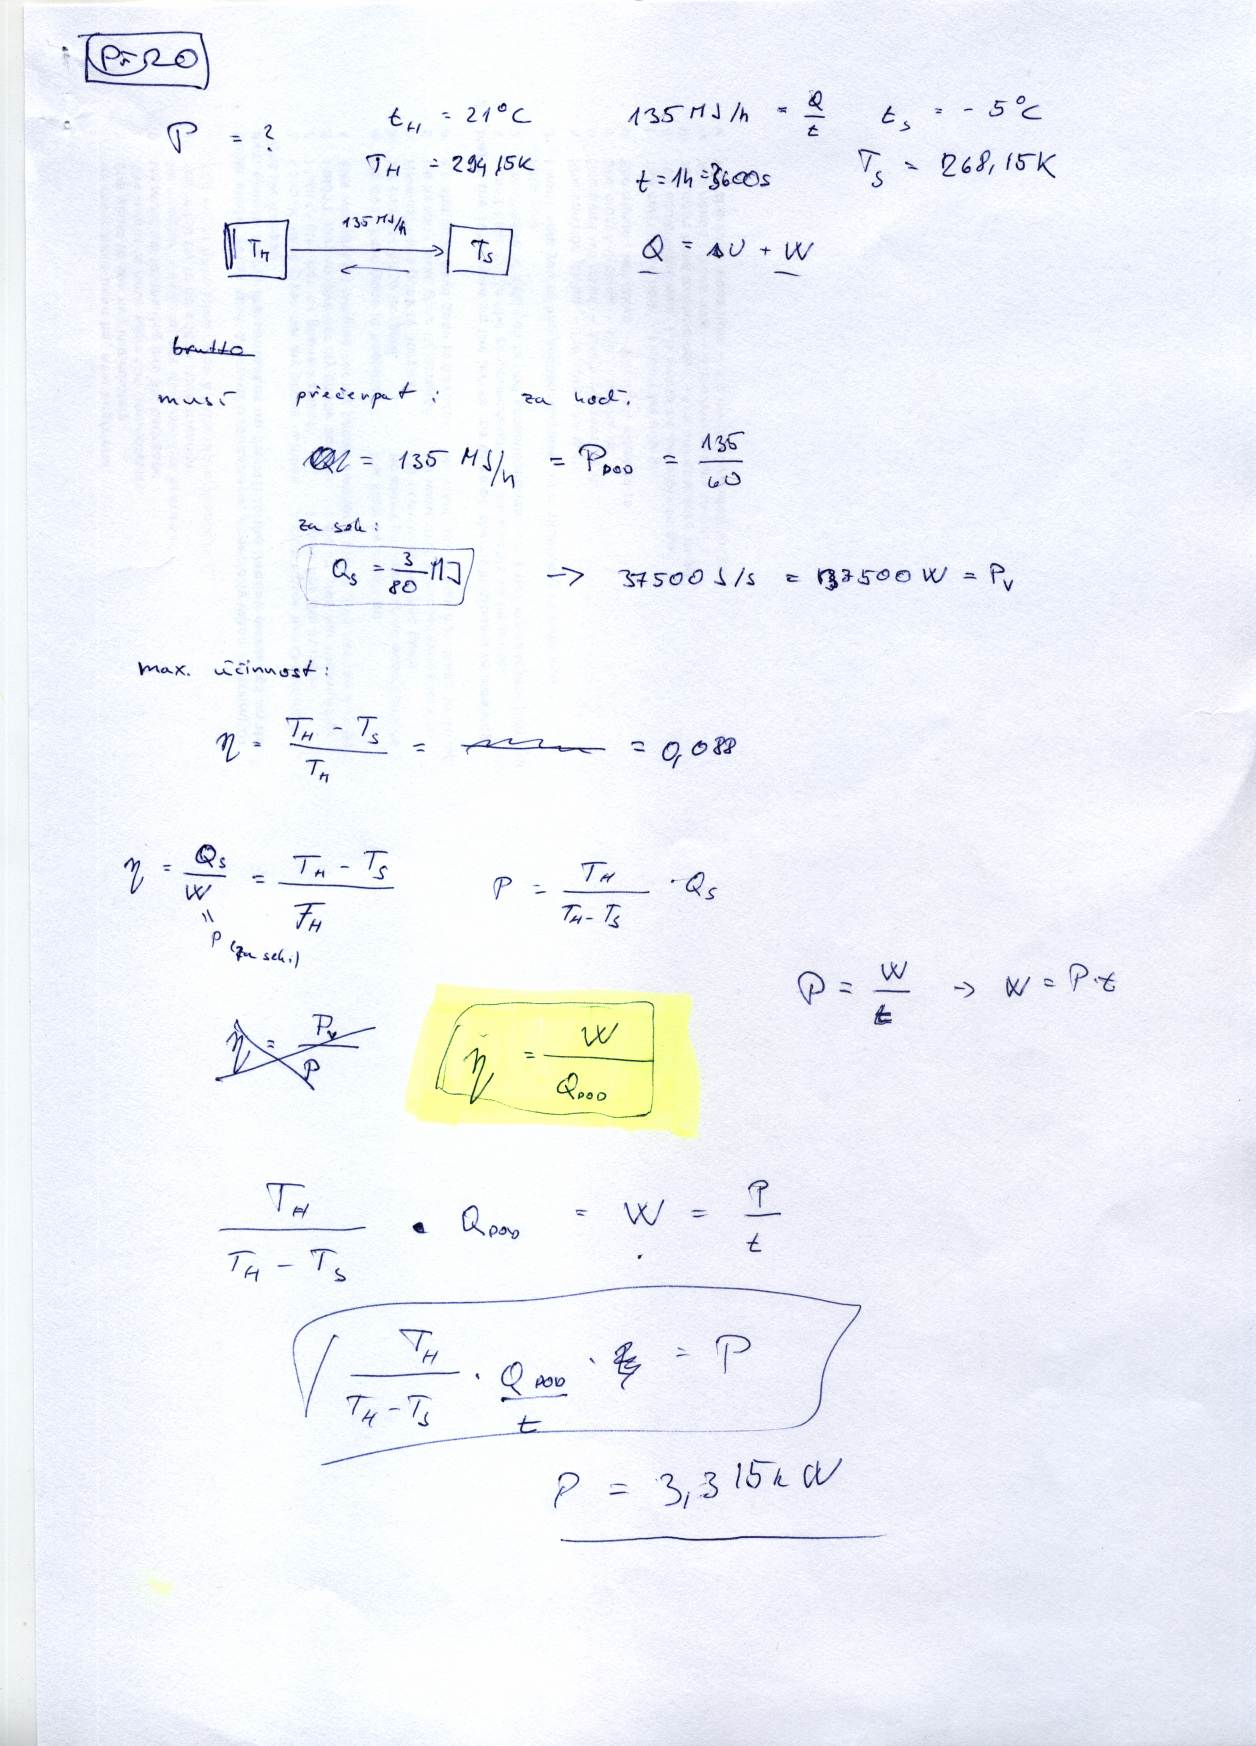 Př 20
P = ?
t_H = 21°C
135 MJ/h = Q/t
t_s = -5°C
T_H = 294,15K
t = 1h = 3600s
T_s = 268,15K
135 MJ/h
T_H
T_s
Q = ΔU + W
brutto
musí přečerpat: za hod.
= 135 MJ/h = P_DOD = 135/60
za sek:
Q_s = 3/80 MJ → 37500 J/s = 37500 W = P_v
max. účinnost:
η = (T_H - T_s)/T_H = = 0,088
η = Q_s/W = (T_H - T_s)/T_H
P = T_H/(T_H - T_s) · Q_s
" P (za sek.)
P = W/t → W = P·t
η = P_v/P
η = W/Q_DOD
T_H/(T_H - T_s) · Q_DOD = W = P/t
T_H/(T_H - T_s) · Q_DOD/t · = P
P = 3,315kW